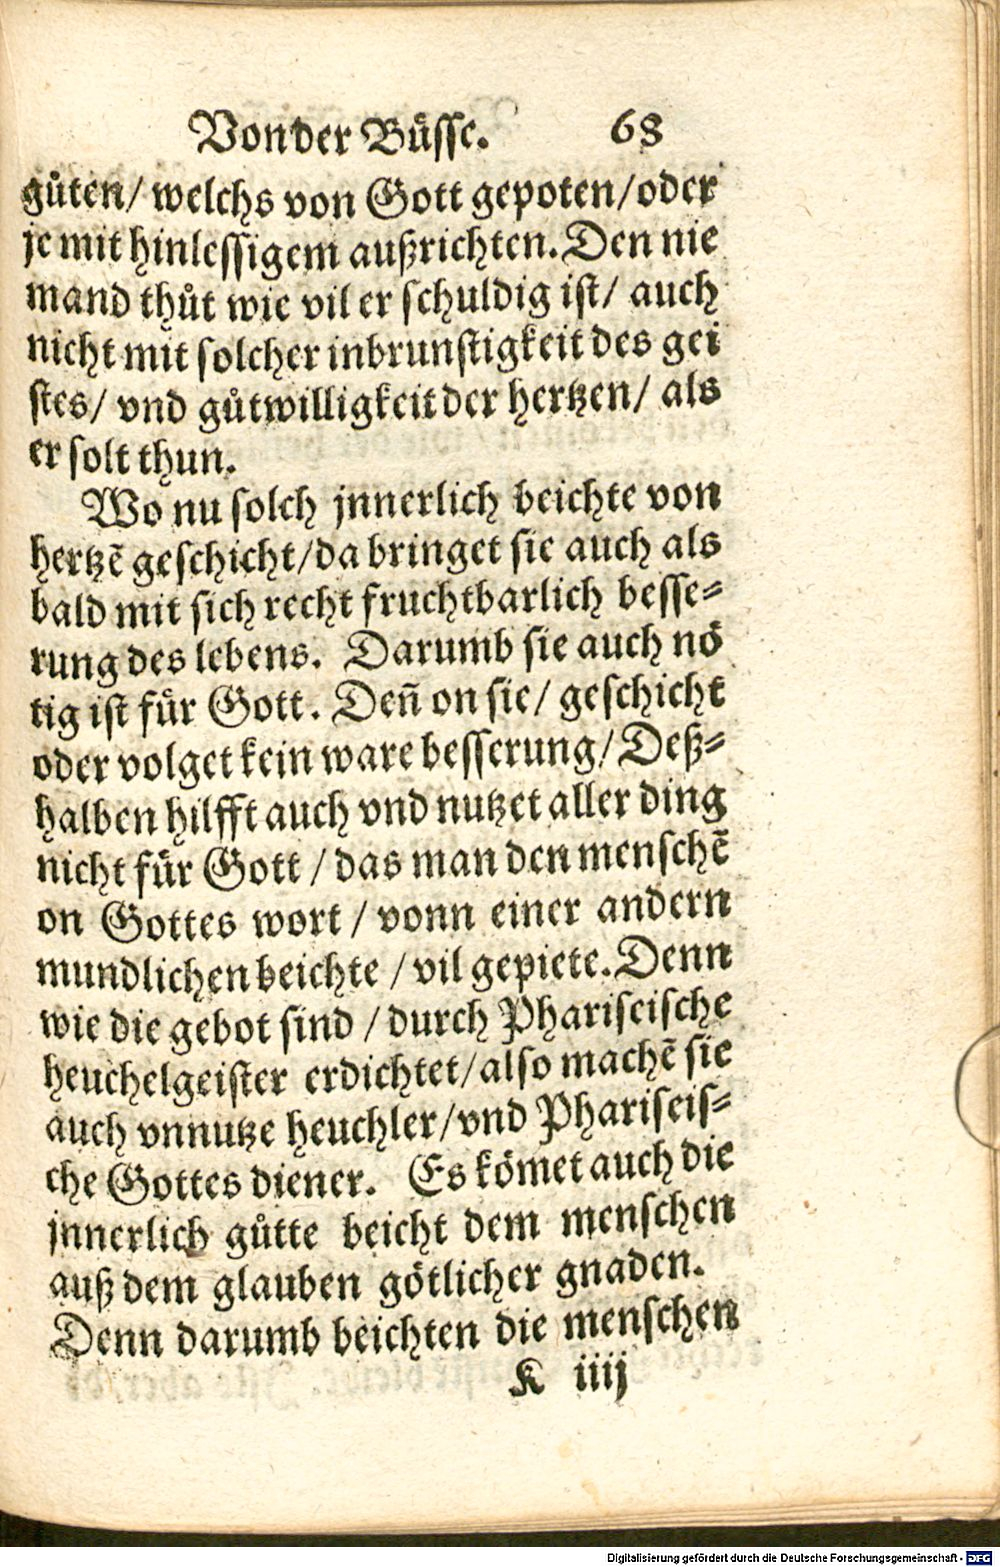 Von der Bůsse. 68
gůten/ welchs von Gott gepoten/oder
je mit hinlessigem außrichten. Den nie
mand thůt wie vil er schuldig ist/ auch
nicht mit solcher inbrunstigkeit des gei
stes/ vnd gůtwilligkeit der hertzen/ als
er solt thun.
Wo nu solch jnnerlich beichte von
hertzē geschicht/da bringet sie auch als
bald mit sich recht fruchtbarlich besse-
rung des lebens. Darumb sie auch nö
tig ist für Gott. Deñ on sie/ geschicht
oder volget kein ware besserung/ Deß-
halben hilfft auch vnd nutzet aller ding
nicht für Gott / das man den menschē
on Gottes wort / vonn einer andern
mundlichen beichte / vil gepiete. Denn
wie die gebot sind / durch Phariseische
heuchelgeister erdichtet/also machē sie
auch vnnutze heuchler/vnd Phariseis-
che Gottes diener. Es kömet auch die
jnnerlich gůtte beicht dem menschen
auß dem glauben götlicher gnaden.
Denn darumb beichten die menschen
K iiij
Digitalisierung gefördert durch die Deutsche Forschungsgemeinschaft - DFG